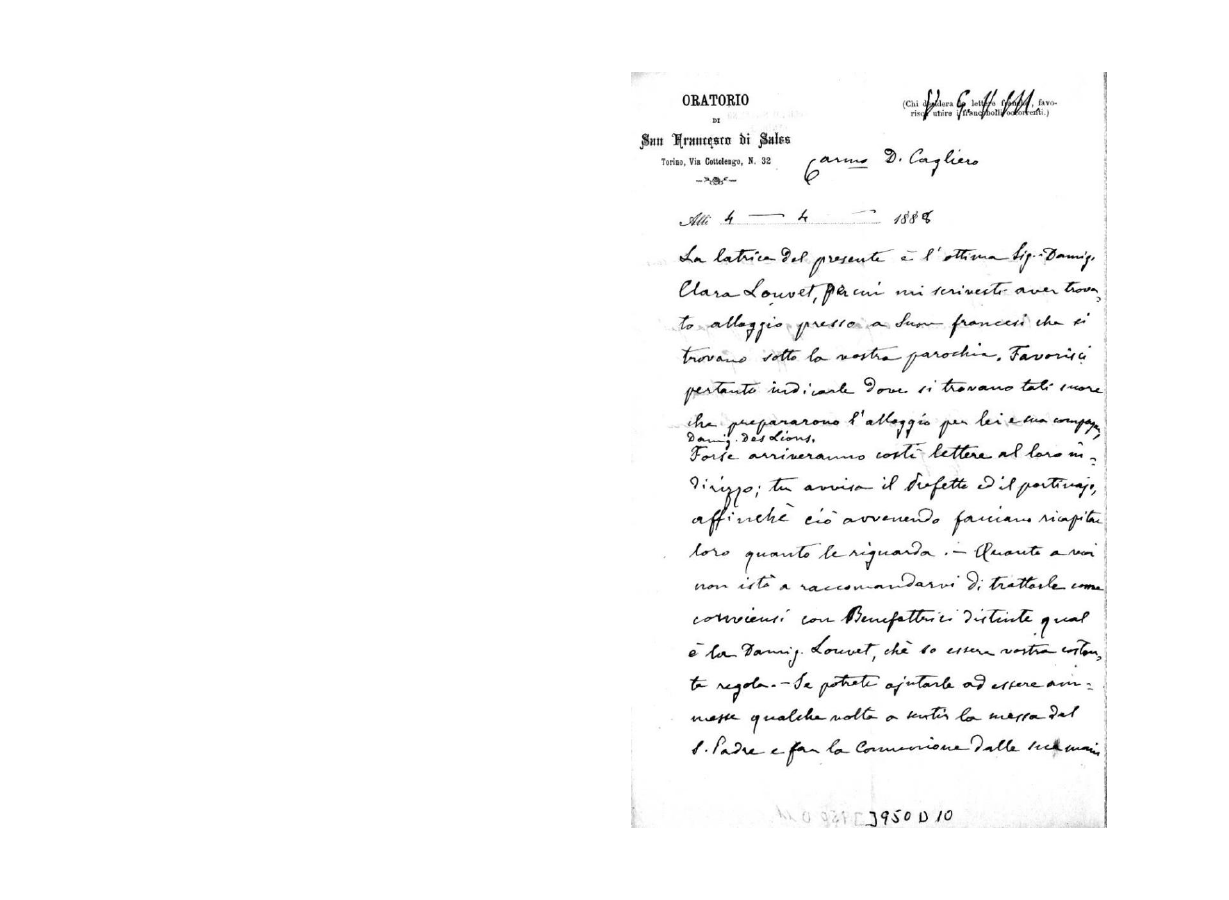 ORATORIO
DI
San Francesco di Sales
Torino, Via Cottolengo, N. 32
(Chi desidera lettere favo-
risca unire i francobolli occorrenti.)
Carmo D. Cagliero
Alli 4 — 4 — 1888
La latrice del presente è l'ottima Sig. Damig.
Clara Louvet, per cui mi scrivesti aver trova-
to alloggio presso a Suore francesi che si
trovano sotto la vostra parochia. Favorisci
pertanto indicarle dove si trovano tali suore
che prepararono l'alloggio per lei e sua compagna
Damig. Des Lions.
Forse arriveranno costì lettere al loro in=
dirizzo; tu avvisa il Prefetto ed il portinajo,
affinchè ciò avvenendo facciano ricapitar
loro quanto le riguarda. — Quanto a voi
non istò a raccomandarvi di trattarle come
conviensi con Benefattrici distinte qual
è la Damig. Louvet, chè so essere vostra costan-
te regola. — Se potrete ajutarle ad essere am=
messe qualche volta a sentir la messa del
S. Padre e far la Comunione dalle sue mani
3950 D 10